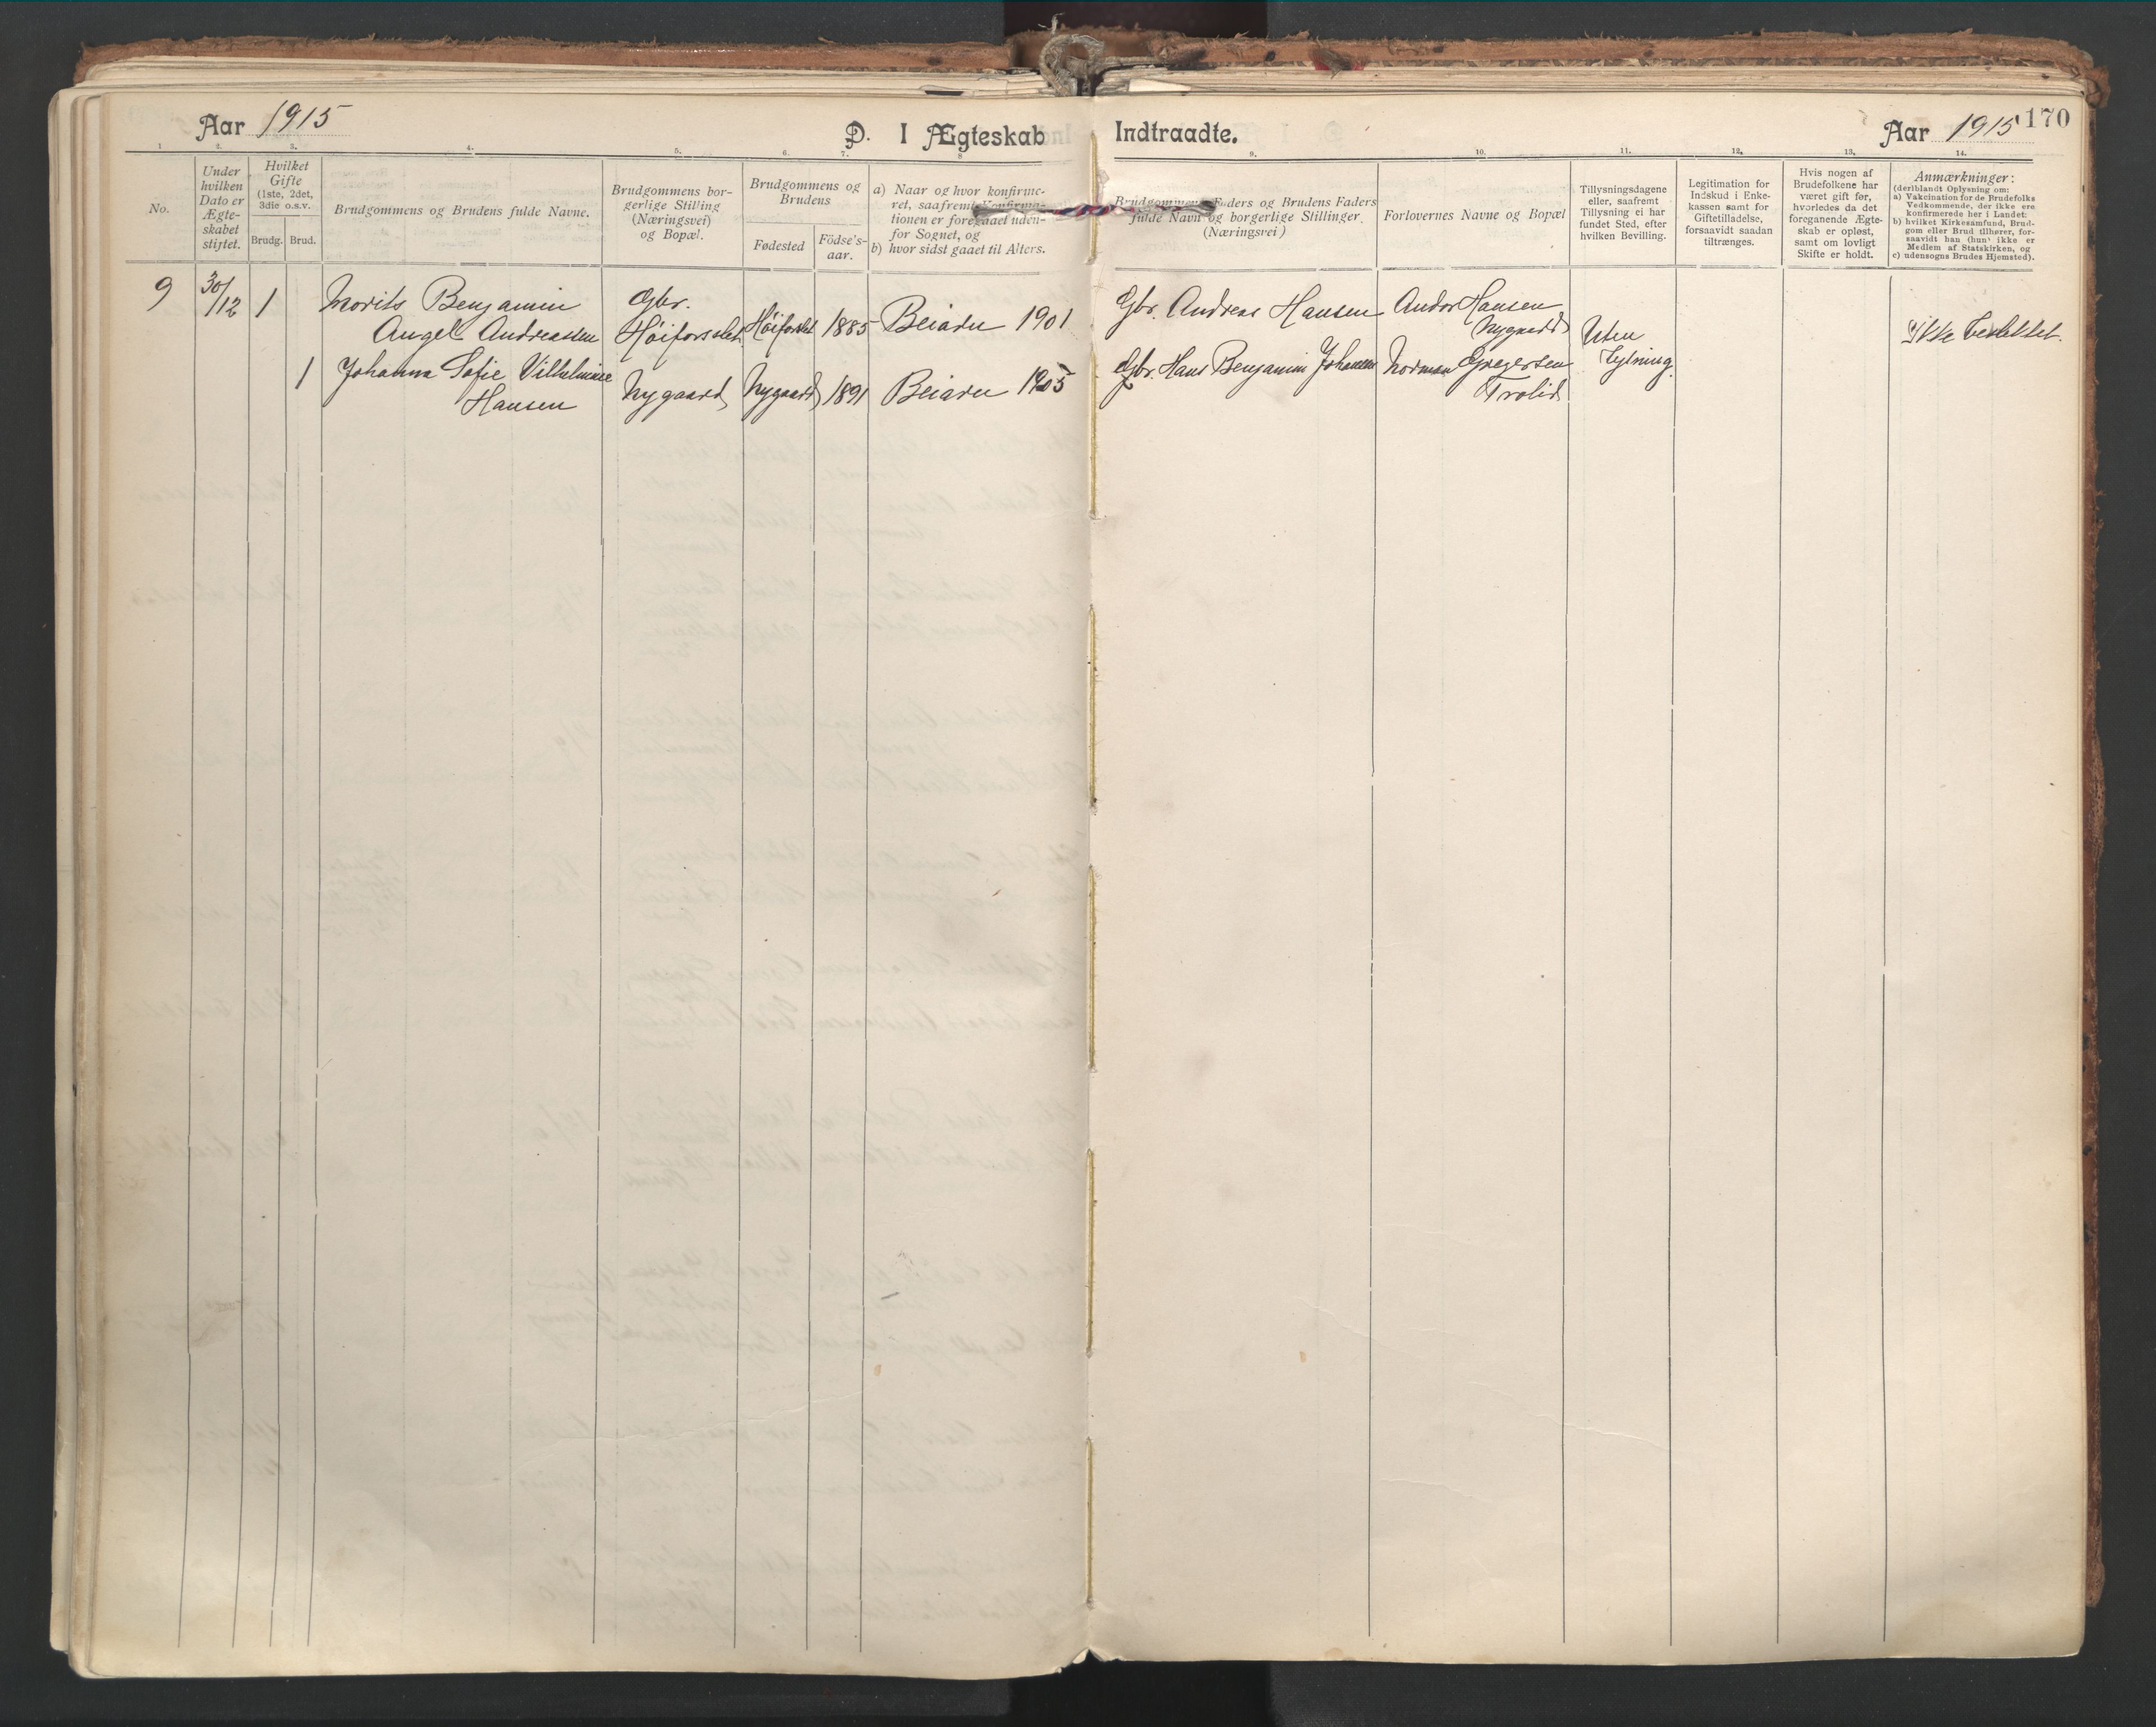 Aar 1915
D. I Ægteskab Indtraadte.
Aar 1915
170
1. 2. 3. 4. 5. 6. 7. 8 9. 10. 11. 12. 13. 14.
No.
Under
hvilken
Dato er
Ægte-
skabet
stiftet.
Hvilket
Gifte
(1ste, 2det,
3die o.s.v.
Brudg. Brud.
Brudgommens og Brudens fulde Navne.
Brudgommens bor-
gerlige Stilling
(Næringsvei)
og Bopæl.
Brudgommens og
Brudens
Fødested
Födse's-
aar.
a) Naar og hvor konfirme-
ret, saafremt Konfirma-
tionen er foregaaet uden-
for Sognet, og
b) hvor sidst gaaet til Alters.
Brudgommens Faders og Brudens Faders
fulde Navn og borgerlige Stillinger.
(Næringsvei)
Forlovernes Navne og Bopæl
Tillysningsdagene
eller, saafremt
Tillysning ei har
fundet Sted, efter
hvilken Bevilling.
Legitimation for
Indskud i Enke-
kassen samt for
Giftetilladelse,
forsaavidt saadan
tiltrænges.
Hvis nogen af
Brudefolkene har
været gift før,
hvorledes da det
foregaaende Ægte-
skab er opløst,
samt om lovligt
Skifte er holdt.
Anmærkninger:
(deriblandt Oplysning om:
a) Vakcination for de Brudefolks
Vedkommende, der ikke ere
konfirmerede her i Landet:
b) hvilket Kirkesamfund, Brud-
gom eller Brud tilhører, for-
saavidt han (hun) ikke er
Medlem af Statskirken, og
c) udensogns Brudes Hjemsted).
9 30/12 1 Morits Benjamin
Angel Andreassen
Gbr.
Høiforsslet
Høiforslet 1885 Beiarn 1901
Gbr. Andreas Hansen
Andor Hansen
Nygaard
Uten
Lysning.
Ikke beslektet.
1 Johanna Sofie Vilhelmine
Hansen
Nygaard Nygaard 1891 Beiarn 1905
Gbr. Hans Benjamin Johansen
Norman Gregersen
Trolid